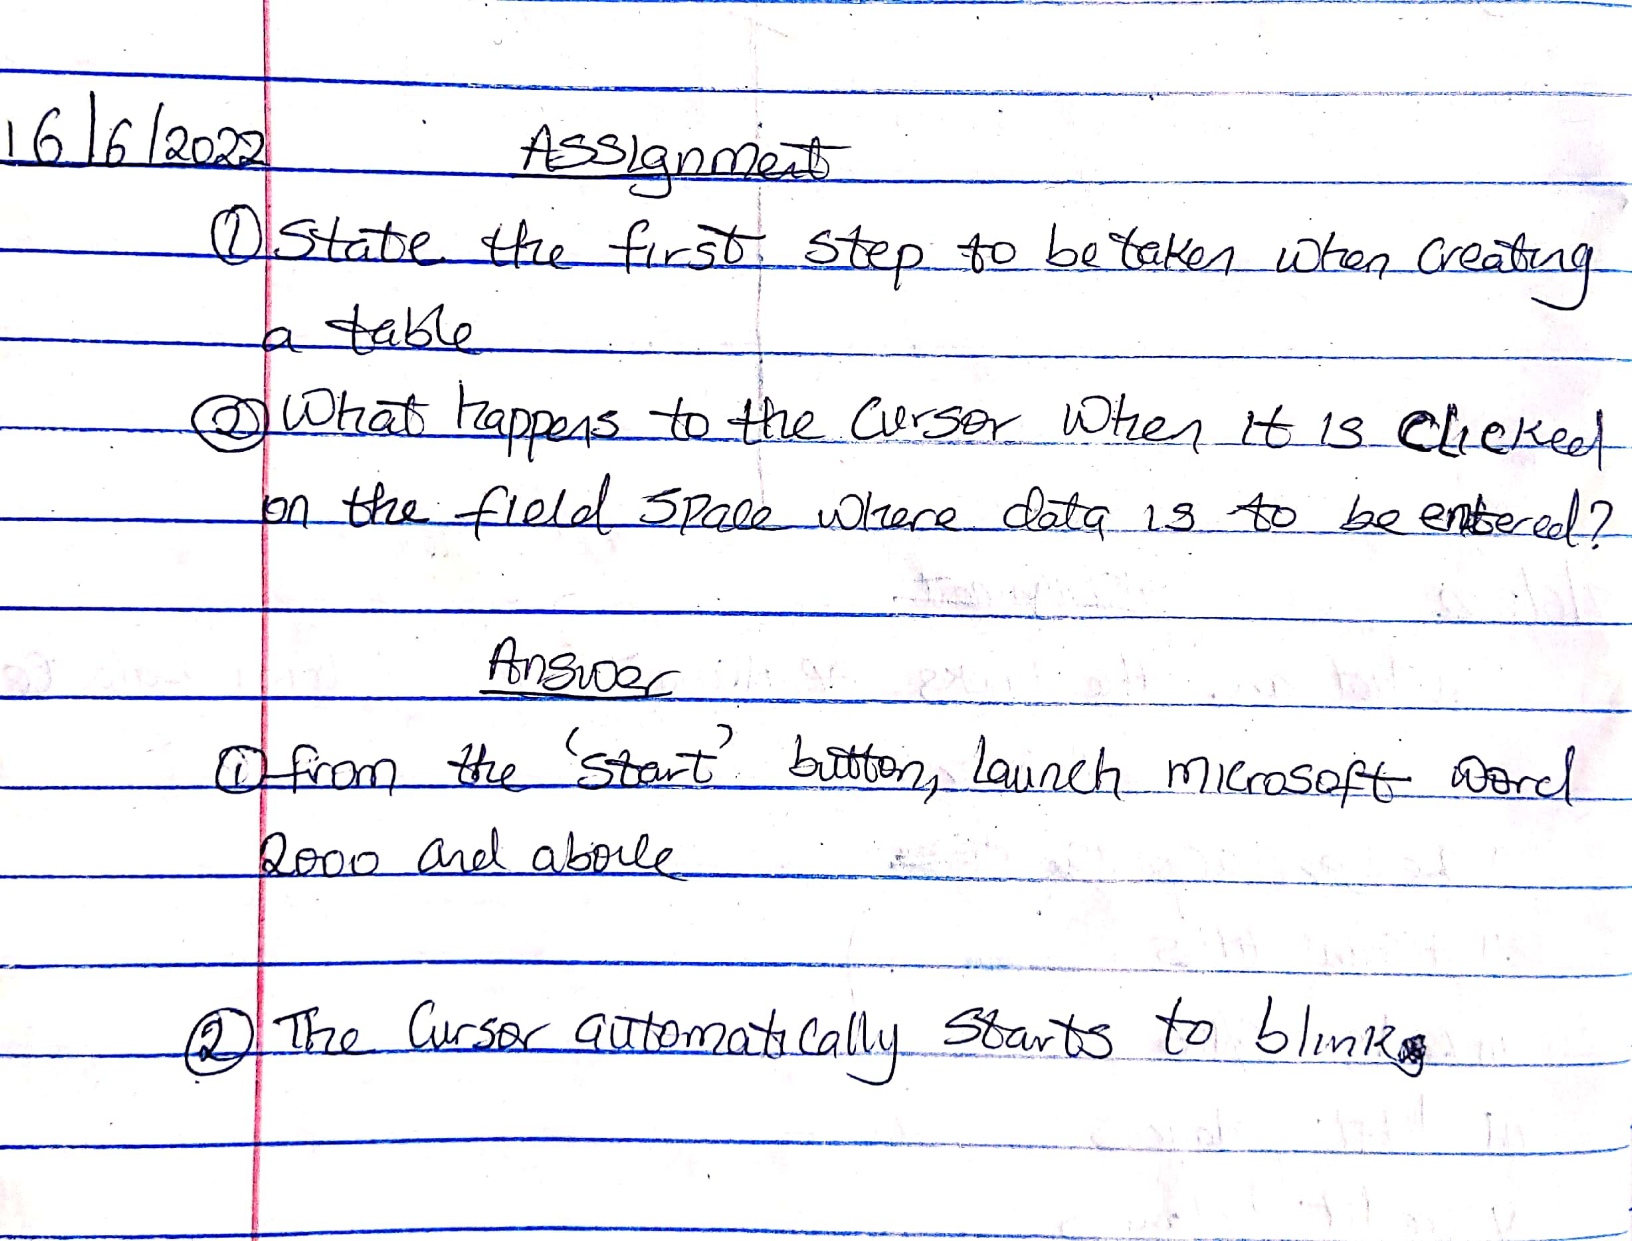 16/6/2022 Assignment
① State the first step to be taken when creating
a table
② What happens to the cursor when it is clicked
on the field space where data is to be entered?
Answer
① from the 'start' button, launch microsoft word
2000 and above
② The cursor automatically starts to blink